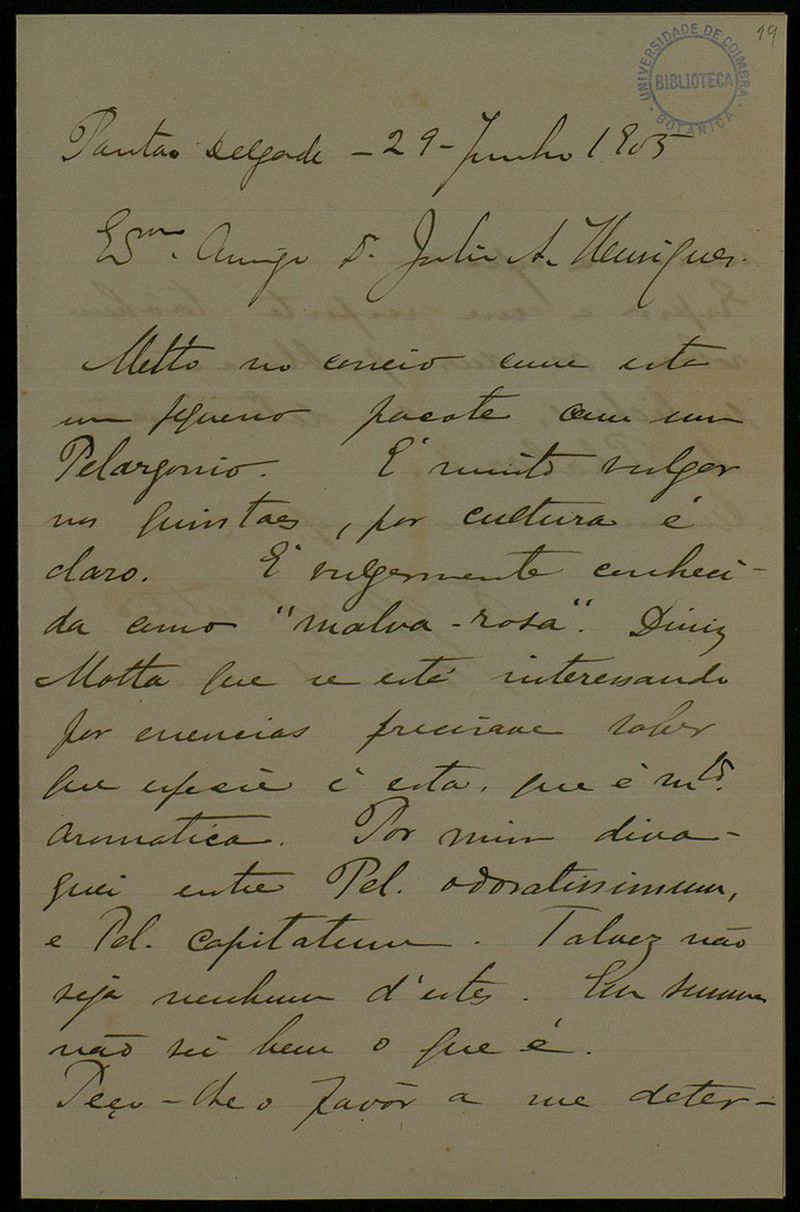 19
UNIVERSIDADE DE COIMBRA
BIBLIOTECA
BOTANICA
Ponta Delgada - 29 - Junho 1905
Exmo. Amigo Dr. Julio A. Henriques.
Metto no correio com esta
um pequeno pacote com um
Pelargonio. É muito vulgar
nos quintaes, por cultura é
claro. É vulgarmente conheci-
da como "malva-rosa". Diniz
Motta que se está interessando
por essencias precisava saber
que especie é esta, que é mto.
aromatica. Por mim diva-
guei entre Pel. odoratissimum,
e Pel. capitatum. Talvez não
seja nenhum d'estes. Em summa
não sei bem o que é.
Peço-lhe o favôr a me deter-